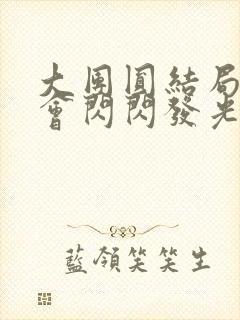 大團圓結局
會閃閃發光
藍領笑笑生